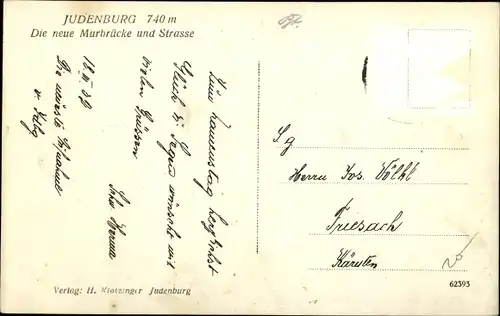 JUDENBURG 740 m
Die neue Murbrücke und Strasse
Zum Namenstag herzlichst
Glück & Segen wünscht mit
vielen Grüssen
18. III. 39
Die neueste Aufnahme
Verlag: H. Klotzinger Judenburg
S. g
Herrn Jos. Völkl
Friesach
Kärnten
20
62393